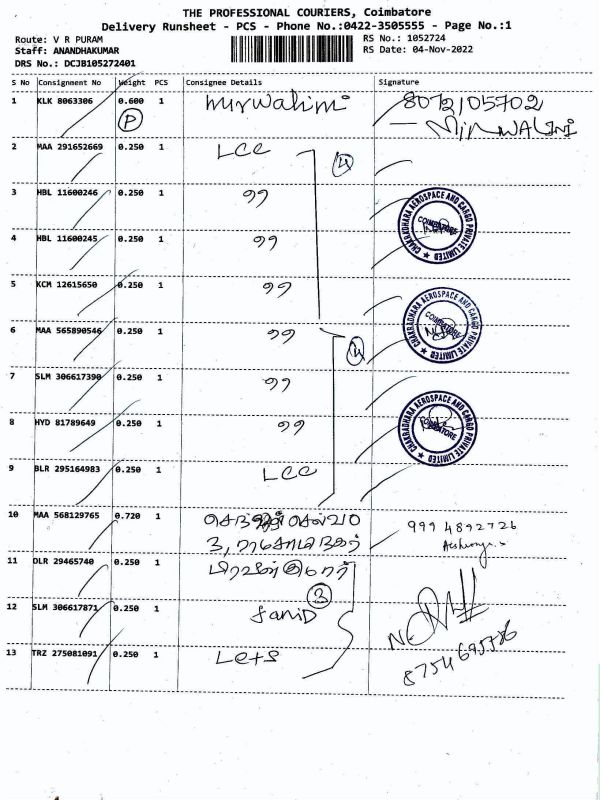 THE PROFESSIONAL COURIERS, Coimbatore
Delivery Runsheet - PCS - Phone No.:0422-3505555 - Page No.:1
Route: V R PURAM
RS No.: 1052724
Staff: ANANDHAKUMAR
RS Date: 04-Nov-2022
DRS No.: DCJB105272401
S No Consignment No Weight PCS Consignee Details Signature
1 KLK 8063306 0.600 1 8072105702
P
2 MAA 291652669 0.250 1 LCC
4
3 HBL 11600246 0.250 1 "
CHAKRADHARA AEROSPACE AND CARGO PRIVATE LIMITED COIMBATORE
4 HBL 11600245 0.250 1 "
5 KCM 12615650 0.250 1 "
6 MAA 565890546 0.250 1 "
CHAKRADHARA AEROSPACE AND CARGO PRIVATE LIMITED COIMBATORE
4
7 SLM 306617390 0.250 1 "
8 HYD 81789649 0.250 1 "
CHAKRADHARA AEROSPACE AND CARGO PRIVATE LIMITED COIMBATORE
9 BLR 295164983 0.250 1 LCC
10 MAA 568129765 0.720 1 999 4892726
11 DLR 29465740 0.250 1
3
12 SLM 306617871 0.250 1
13 TRZ 275081091 0.250 1 Lets